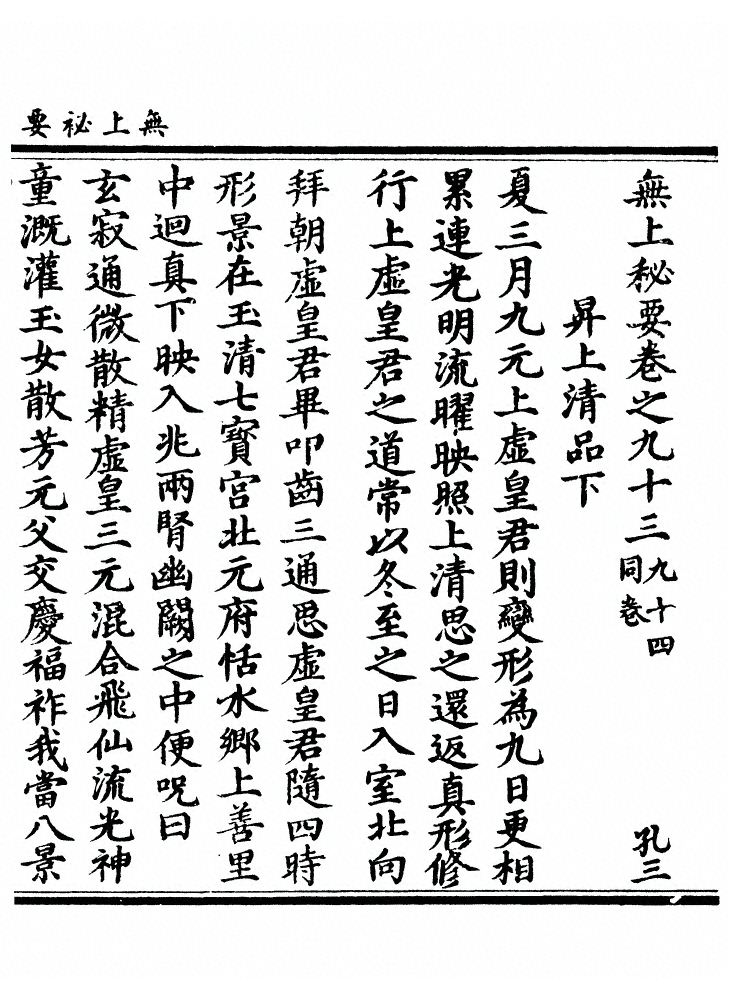 無上祕要
無上秘要卷之九十三 九十四同卷 孔三
昇上清品下
夏三月九元上虛皇君則變形為九日更相
累連光明流曜映照上清思之還返真形修
行上虛皇君之道常以冬至之日入室北向
拜朝虛皇君畢叩齒三通思虛皇君隨四時
形景在玉清七寶宮北元府恬水鄉上善里
中迴真下映入兆兩腎幽闕之中便呪曰
玄寂通微散精虛皇三元混合飛仙流光神
童溉灌玉女散芳元父交慶福祚我當八景